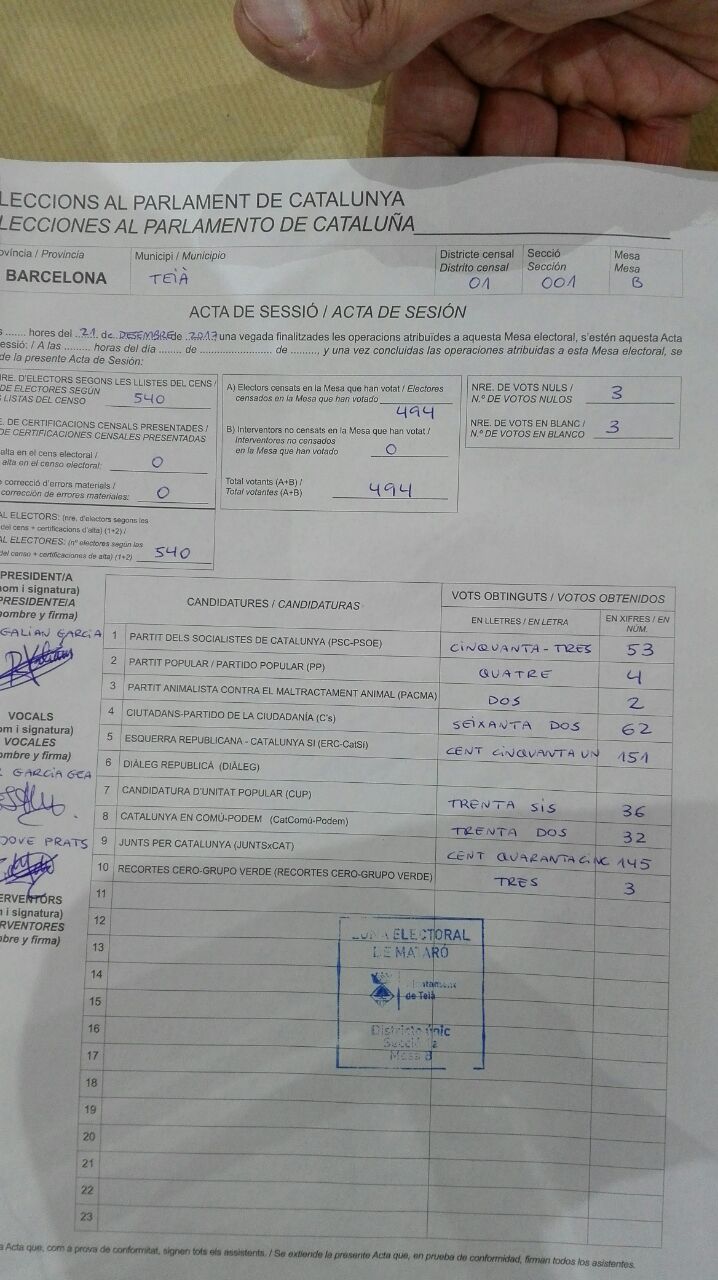 LECCIONS AL PARLAMENT DE CATALUNYA
LECCIONES AL PARLAMENTO DE CATALUÑA
ovíncia / Provincia
BARCELONA
Municipi / Municipio
TEIÀ
Districte censal
Distrito censal
01
Secció
Sección
001
Mesa
Mesa
B
ACTA DE SESSIÓ / ACTA DE SESIÓN
s ....... hores del 21 de DESEMBRE de 2017 una vegada finalitzades les operacions atribuïdes a aquesta Mesa electoral, s'estén aquesta Acta
essió: / A las ......... horas del día ....... de ......................... de ........., y una vez concluidas las operaciones atribuidas a esta Mesa electoral, se
de la presente Acta de Sesión:
RE. D'ELECTORS SEGONS LES LLISTES DEL CENS /
DE ELECTORES SEGÚN
LISTAS DEL CENSO
540
. DE CERTIFICACIONS CENSALS PRESENTADES /
DE CERTIFICACIONES CENSALES PRESENTADAS
alta en el cens electoral /
alta en el censo electoral:
0
correcció d'errors materials /
corrección de errores materiales:
0
AL ELECTORS: (nre. d'electors segons les
del cens + certificacions d'alta) (1+2) /
AL ELECTORES: (nº electores según las
del censo + certificaciones de alta) (1+2)
540
A) Electors censats en la Mesa que han votat / Electores
censados en la Mesa que han votado
494
B) Interventors no censats en la Mesa que han votat /
Interventores no censados
en la Mesa que han votado
0
Total votants (A+B) /
Total votantes (A+B)
494
NRE. DE VOTS NULS /
N.º DE VOTOS NULOS
3
NRE. DE VOTS EN BLANC /
N.º DE VOTOS EN BLANCO
3
PRESIDENT/A
om i signatura)
PRESIDENTE/A
mbre y firma)
GALIAN GARCIA
VOCALS
om i signatura)
VOCALES
ombre y firma)
GARCIA GEA
JOVE PRATS
ERVENTORS
m i signatura)
RVENTORES
mbre y firma)
CANDIDATURES / CANDIDATURAS
VOTS OBTINGUTS / VOTOS OBTENIDOS
EN LLETRES / EN LETRA
EN XIFRES / EN NÚM.
1 PARTIT DELS SOCIALISTES DE CATALUNYA (PSC-PSOE) CINQUANTA-TRES 53
2 PARTIT POPULAR / PARTIDO POPULAR (PP) QUATRE 4
3 PARTIT ANIMALISTA CONTRA EL MALTRACTAMENT ANIMAL (PACMA) DOS 2
4 CIUTADANS-PARTIDO DE LA CIUDADANÍA (C's) SEIXANTA DOS 62
5 ESQUERRA REPUBLICANA - CATALUNYA SI (ERC-CatSí) CENT CINQUANTA UN 151
6 DIÀLEG REPUBLICÀ (DIÀLEG)
7 CANDIDATURA D'UNITAT POPULAR (CUP) TRENTA SIS 36
8 CATALUNYA EN COMÚ-PODEM (CatComú-Podem) TRENTA DOS 32
9 JUNTS PER CATALUNYA (JUNTSxCAT) CENT QUARANTA CINC 145
10 RECORTES CERO-GRUPO VERDE (RECORTES CERO-GRUPO VERDE) TRES 3
11
12
13
14
15
16
17
18
19
20
21
22
23
ELECTORAL
DE MATARÓ
de Teià
Districte únic
Mesa B
a Acta que, com a prova de conformitat, signen tots els assistents. / Se extiende la presente Acta que, en prueba de conformidad, firman todos los asistentes.